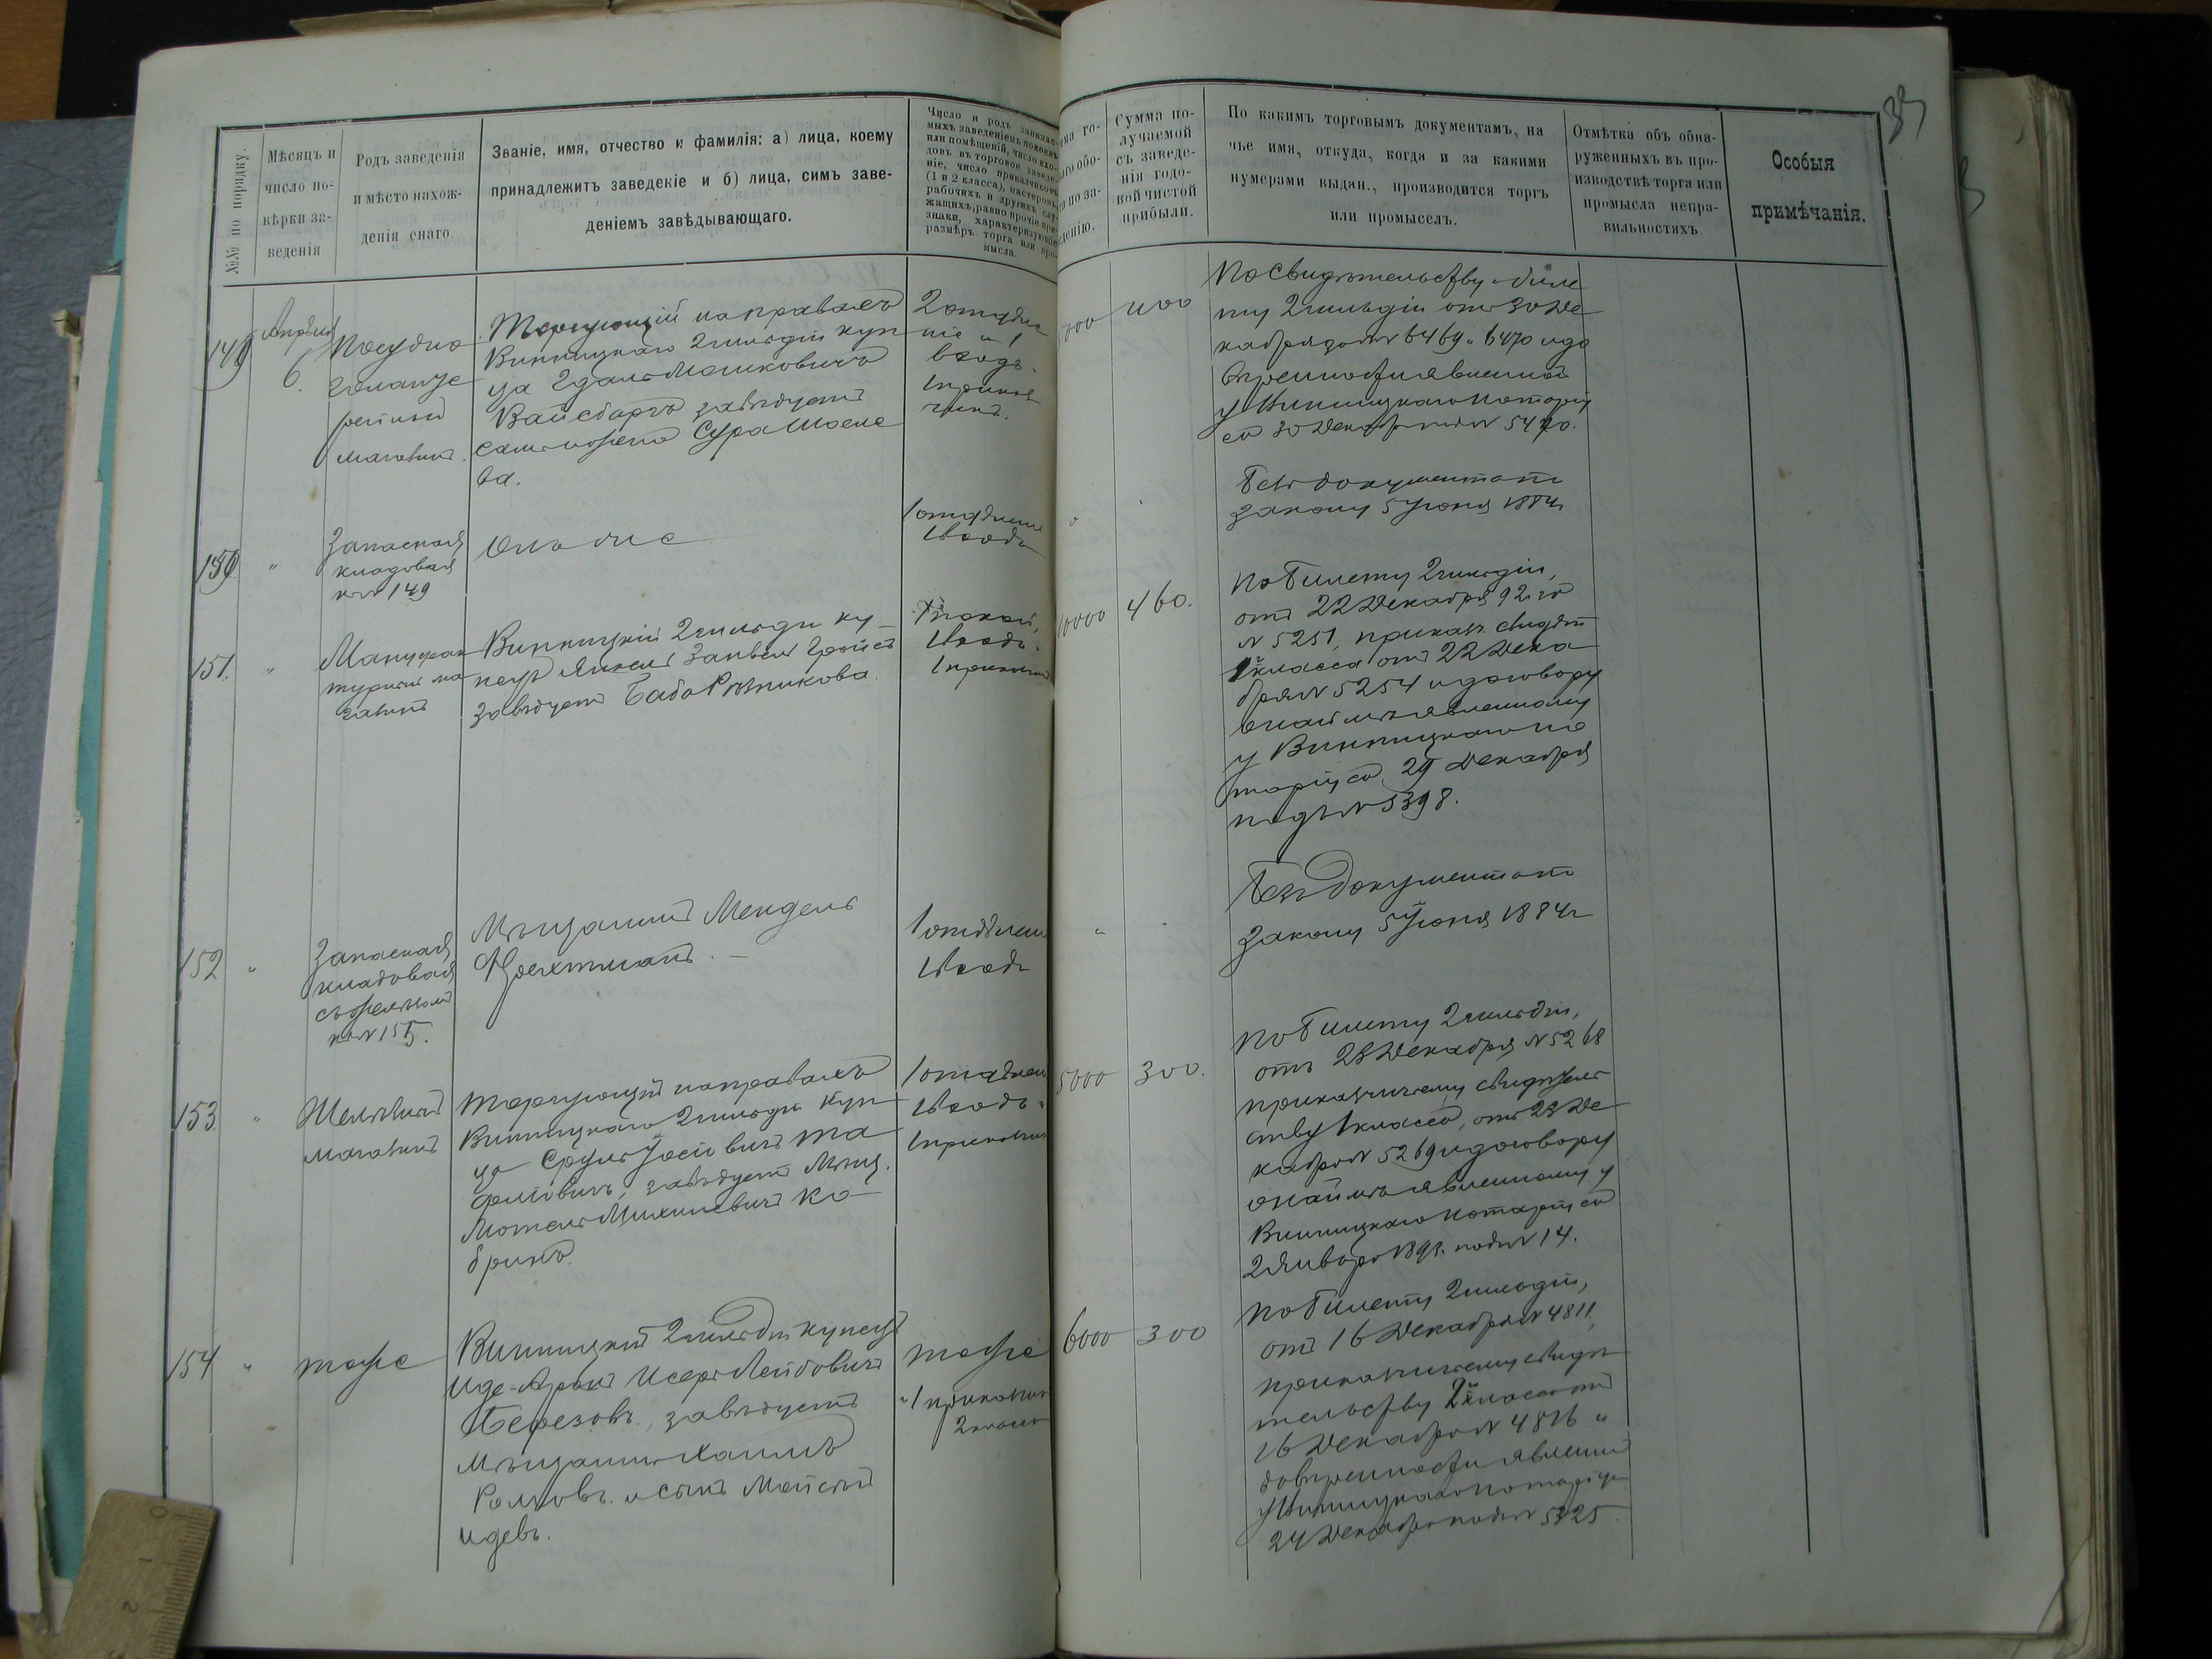 39
№№ по порядку.
Мѣсяцъ и
число по-
вѣрки за-
веденія
Родъ заведенія
и мѣсто нахож-
денія онаго.
Званіе, имя, отчество и фамилія: а) лица, коему
принадлежитъ заведеніе и б) лица, симъ заве-
деніемъ завѣдывающаго.
Число и родъ занимае-
мыхъ заведеніемъ покоевъ
или помѣщеній, число вхо-
довъ въ торговое заведе-
ніе, число приказчиковъ
(1 и 2 класса), мастеровъ,
рабочихъ и другихъ слу-
жащихъ, равно прочіе при-
знаки, характеризующіе
размѣръ торга или про-
мысла.
Сумма по-
лучаемой
съ заведе-
нія годо-
вой чистой
прибыли.
По какимъ торговымъ документамъ, на
чье имя, откуда, когда и за какими
нумерами выдан., производится торгъ
или промыселъ.
Отмѣтка объ обна-
руженныхъ въ про-
изводствѣ торга или
промысла непра-
вильностяхъ
Особыя
примѣчанія.
149
Апрѣля
6.
Посудно
галанте
рейный
магазинъ.
Торгующій на правахъ
Винницкаго 2 гильдіи куп
ца Мошковичъ
Вайсбортъ завѣдуетъ
Сура
ва.
2 отдѣле
нія
входъ
1 приказ
чикъ.
400
По свидѣтельству и биле
ту 2 гильдіи отъ 30 Де
кабря за №№ 6469 и 6470 и до
вѣренности явленной
у Винницкаго Нотаріу
са 30 Декабря № 5470.
150
"
Запасная
кладовая
къ № 149
Она же
1 отдѣленіе
1 входъ
Безъ документа по
закону 5 Іюня 1884 г.
151.
"
Мануфак
турный ма
газинъ
Винницкій 2 гильдіи ку
пецъ Янкель
завѣдуетъ Резникова.
покой,
1 входъ.
1 приказчик
10000
460.
По билету 2 гильдіи,
отъ 22 Декабря 92 го
№ 5251, приказ. свидѣт
1 класса отъ 22 Дека
бря № 5254 и договору
о наймѣ явленному
у Винницкаго но
таріуса 29 Декабря
подъ № 5398.
152
"
Запасная
кладовая
съ желѣзомъ
къ № 155.
Мѣщанинъ Мендель
Фрехтманъ. —
1 отдѣлен
1 входъ
"
Безъ документа по
закону 5 Іюня 1884 г
153
"
Желѣзный
магазинъ
Торгующій на правахъ
Винницкаго 2 гильдіи куп
ца Сруль Іосіовичъ
завѣдуетъ Мѣщ.
Мотель Михилевичъ Ко
бринъ.
1 отдѣлен
1 входъ.
1 приказчик
5000
300.
По билету 2 гильдіи,
отъ 23 Декабря № 5268
приказчичьему свидѣтель
ству 1 класса, отъ 23 Де
кабря № 5269 и договору
о наймѣ явленному у
Винницкаго Нотаріуса
2 Января 1893. подъ № 14.
154
"
тоже
Винницкій 2 гильдіи купецъ
Иде-Аронъ Исерь Лейбовичъ
Березовъ., завѣдуетъ
Мѣщанинъ Хаимъ
и сынъ
Идевъ.
тоже
и 1 приказчик
2 класса
6000
300
По билету 2 гильдіи,
отъ 16 Декабря № 4811,
приказчичьему свидѣ
тельству 2 класса отъ
16 Декабря № 4816 и
довѣренности явленной
у Винницкаго нотаріуса
24 Декабря подъ № 5325.